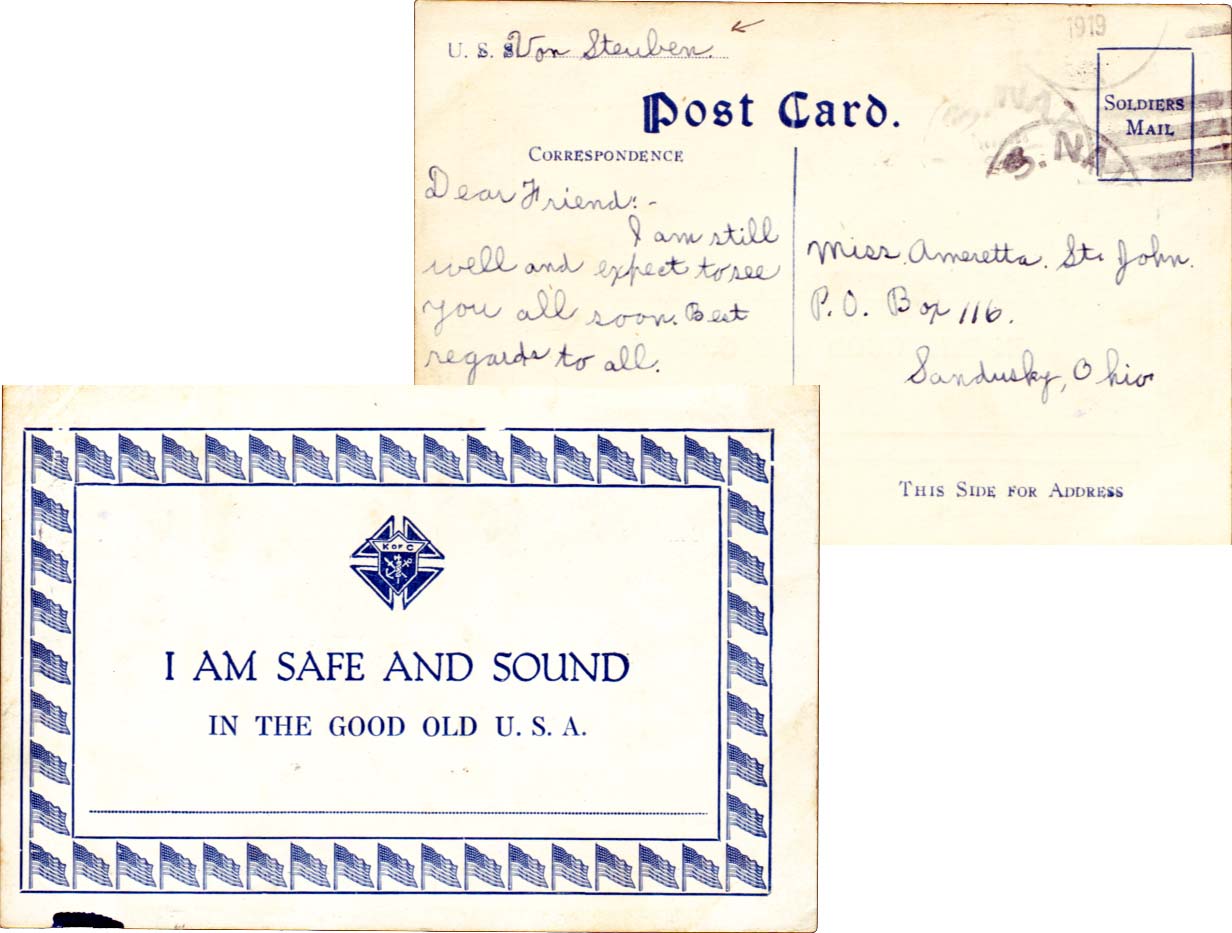 1919
U. S. S. Von Steuben.
Post Card.
SOLDIERS
MAIL
S. NA
CORRESPONDENCE
Dear Friend:-
I am still
well and expect to see
you all soon. Best
regards to all.
Miss Ameretta St. John.
P. O. Box 116.
Sandusky, Ohio
THIS SIDE FOR ADDRESS
K OF C
I AM SAFE AND SOUND
IN THE GOOD OLD U. S. A.